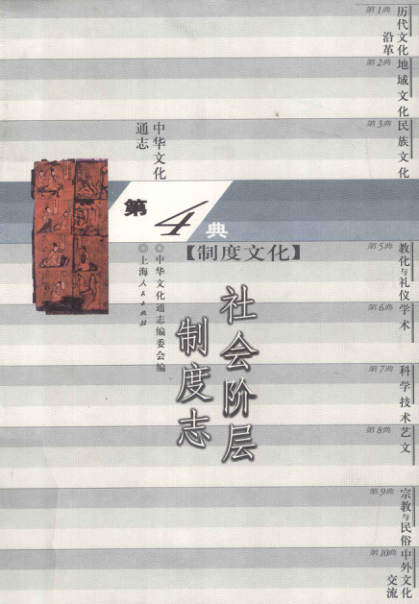 第1典 历代文化
沿革
第2典 地域文化
第3典 民族文化
中华文化
通志
第4典
【制度文化】
◎中华文化通志编委会编
◎上海人民出版社
社会阶层
制度志
第5典 教化与礼仪
第6典 学术
第7典 科学技术
第8典 艺文
第9典 宗教与民俗
第10典 中外文化
交流